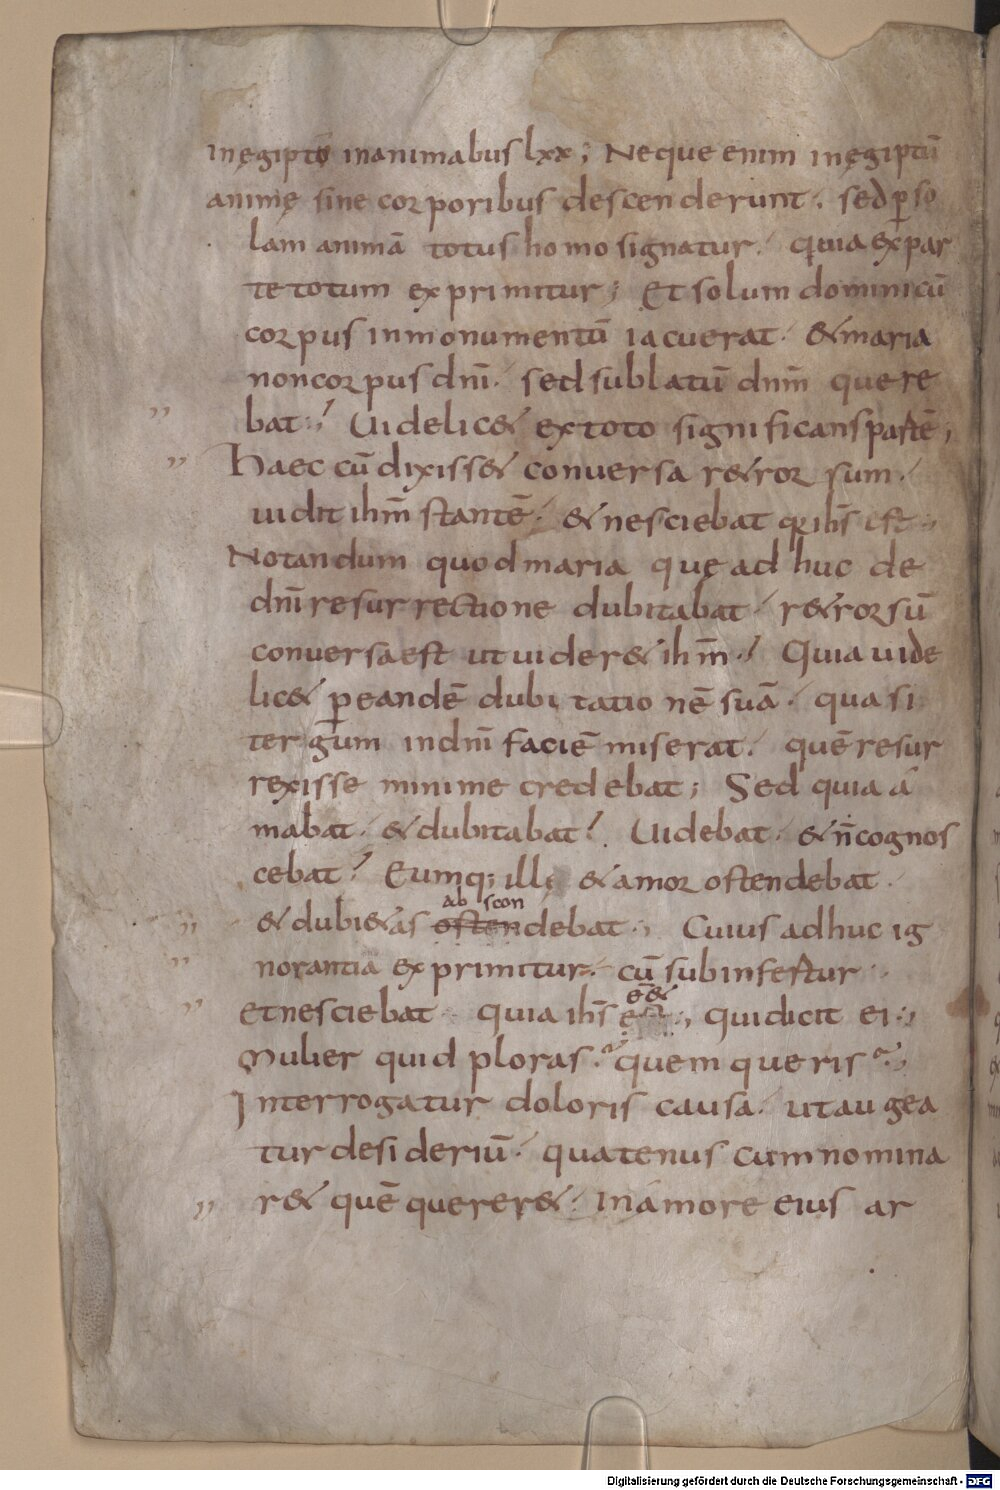 inęgipto inanimabus lxx; Neque enim inęgiptū
animę sine corporibus descenderunt. sed p̱ so
lam animā totus homo signatur. quia expar
te totum exprimitur; Et solum dominicū
corpus inmonumentū iacuerat. & maria
noncorpus dn̄i. sed sublatū dnm̄ quere
bat; Uidelic& extoto significans partē;
Haec cū dixiss& conuersa r&ror sum.
uidit ihm̄ stantē. & nesciebat q ihs̄ est;
Notandum quod maria quę ad huc de
dn̄i resurrectione dubitabat. r&rorsū
conuersa est ut uider& ihm̄. Quia uide
lic& p̱ eandē dubitationē suā. quasi
tergum indn̄i faciē miserat. quē resur
rexisse minime credebat; Sed quia a
mabat. & dubitabat. Uidebat. & n̄ cognos
cebat. Eumq; illi & amor ostendebat.
ab scon
& dubi&as ostendebat; Cuius adhuc ig
norantia exprimitur. cū subinfertur.
e&
etnesciebat quia ihs̄ est; qui dicit ei;
Mulier quid ploras. quem queris;
Interrogatur doloris causa. ut augea
tur desideriū. quatenus cum nomina
r& quē querer&. Inamore eius ar
Digitalisierung gefördert durch die Deutsche Forschungsgemeinschaft - DFG